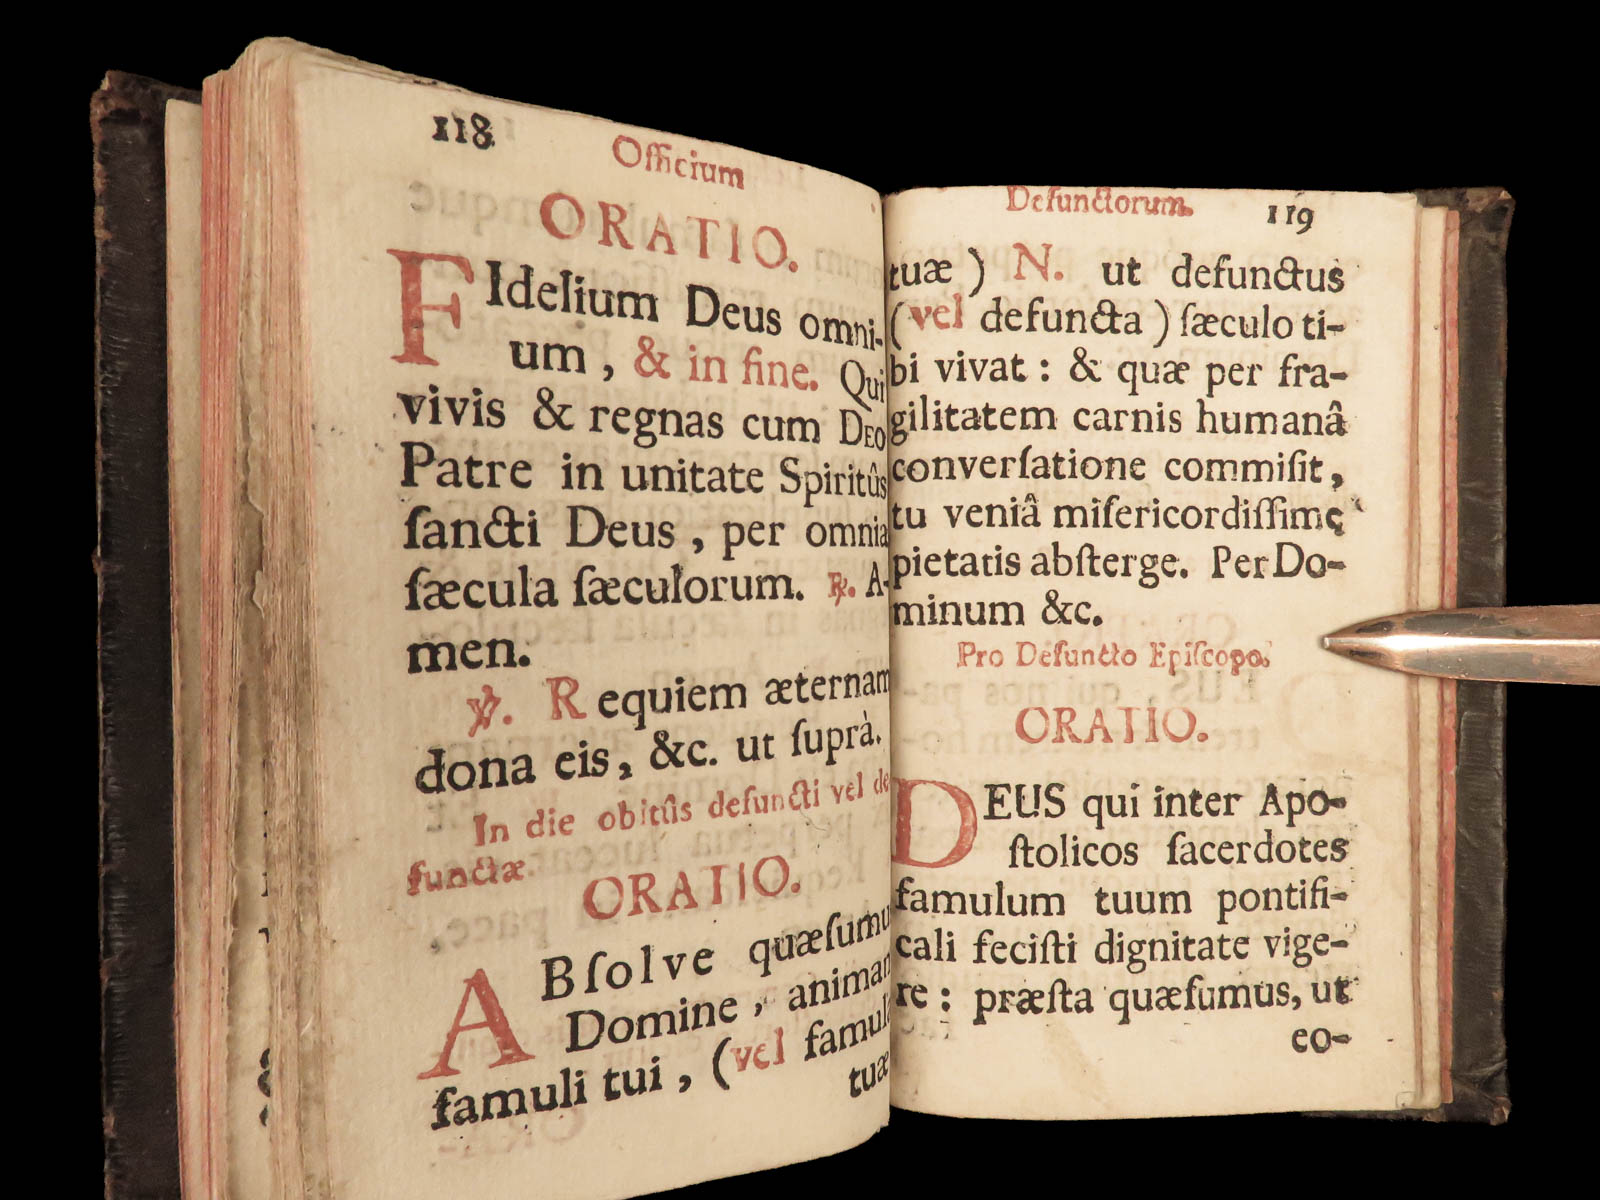 118
Officium
ORATIO.
FIdelium Deus omni-
um, & in fine. Qui
vivis & regnas cum DEO
Patre in unitate Spiritûs
ſancti Deus, per omnia
ſæcula ſæculorum. ℟. A-
men.
℣. Requiem æternam
dona eis, &c. ut ſuprà.
In die obitûs defuncti vel de
functæ.
ORATIO.
ABſolve quæſumu
Domine, animam
famuli tui, (vel famulæ
tuæ
Defunctorum.
119
tuæ) N. ut defunctus
(vel defuncta) ſæculo ti-
bi vivat: & quæ per fra-
gilitatem carnis humanâ
converſatione commiſit,
tu veniâ miſericordiſſimę
pietatis abſterge. Per Do-
minum &c.
Pro Defuncto Epiſcopo.
ORATIO.
DEUS qui inter Apo-
ſtolicos ſacerdotes
famulum tuum pontifi-
cali feciſti dignitate vige-
re: præſta quæſumus, ut
eo-